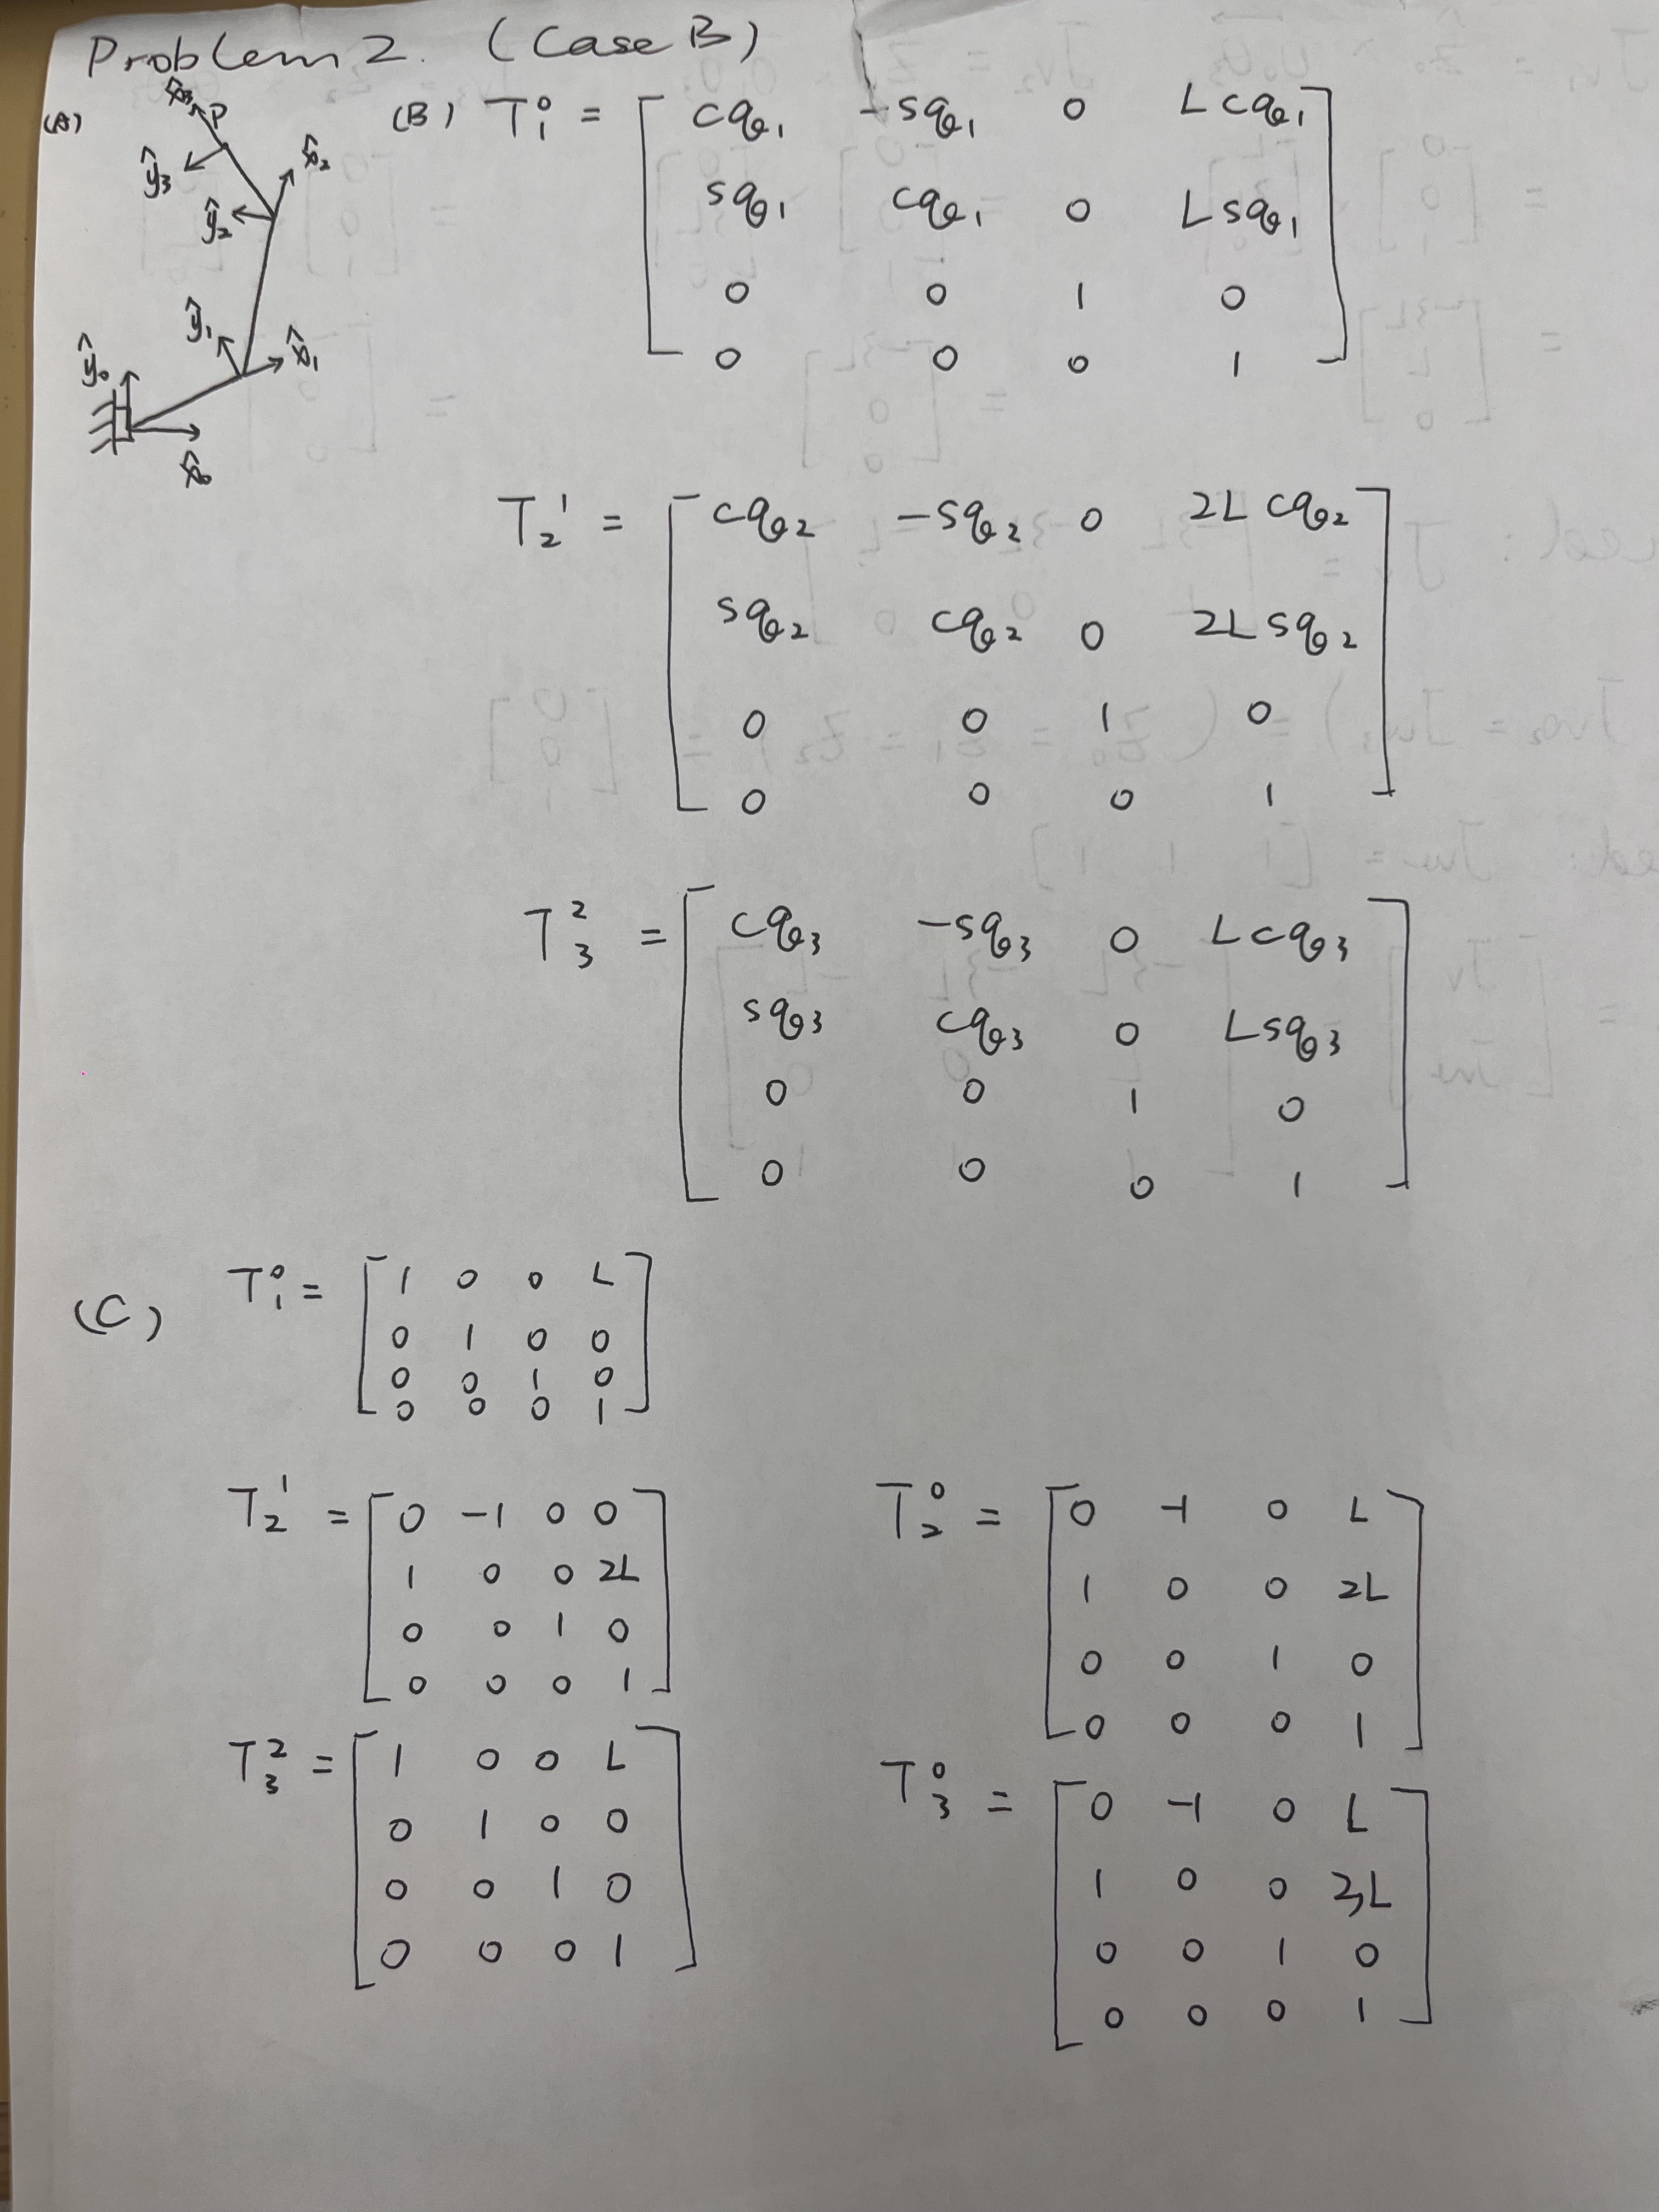 Problem 2. (Case B)
(A)
x̂₃ P
ŷ₃
x̂₂
ŷ₂
ŷ₁
x̂₁
ŷ₀
x̂₀
(B) T₁⁰ = [ cq₁ -sq₁ 0 Lcq₁
sq₁ cq₁ 0 Lsq₁
0 0 1 0
0 0 0 1 ]
T₂¹ = [ cq₂ -sq₂ 0 2Lcq₂
sq₂ cq₂ 0 2Lsq₂
0 0 1 0
0 0 0 1 ]
T₃² = [ cq₃ -sq₃ 0 Lcq₃
sq₃ cq₃ 0 Lsq₃
0 0 1 0
0 0 0 1 ]
(C) T₁⁰ = [ 1 0 0 L
0 1 0 0
0 0 1 0
0 0 0 1 ]
T₂¹ = [ 0 -1 0 0
1 0 0 2L
0 0 1 0
0 0 0 1 ]
T₂⁰ = [ 0 -1 0 L
1 0 0 2L
0 0 1 0
0 0 0 1 ]
T₃² = [ 1 0 0 L
0 1 0 0
0 0 1 0
0 0 0 1 ]
T₃⁰ = [ 0 -1 0 L
1 0 0 3L
0 0 1 0
0 0 0 1 ]